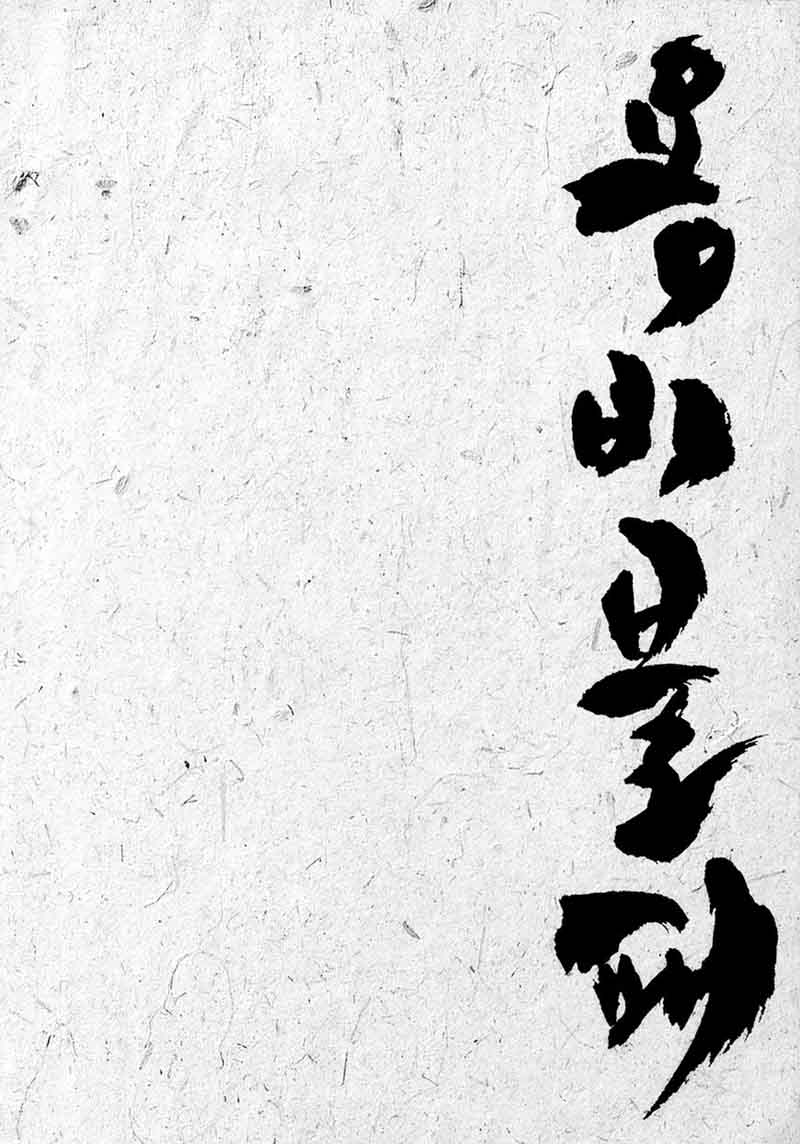 용비불패